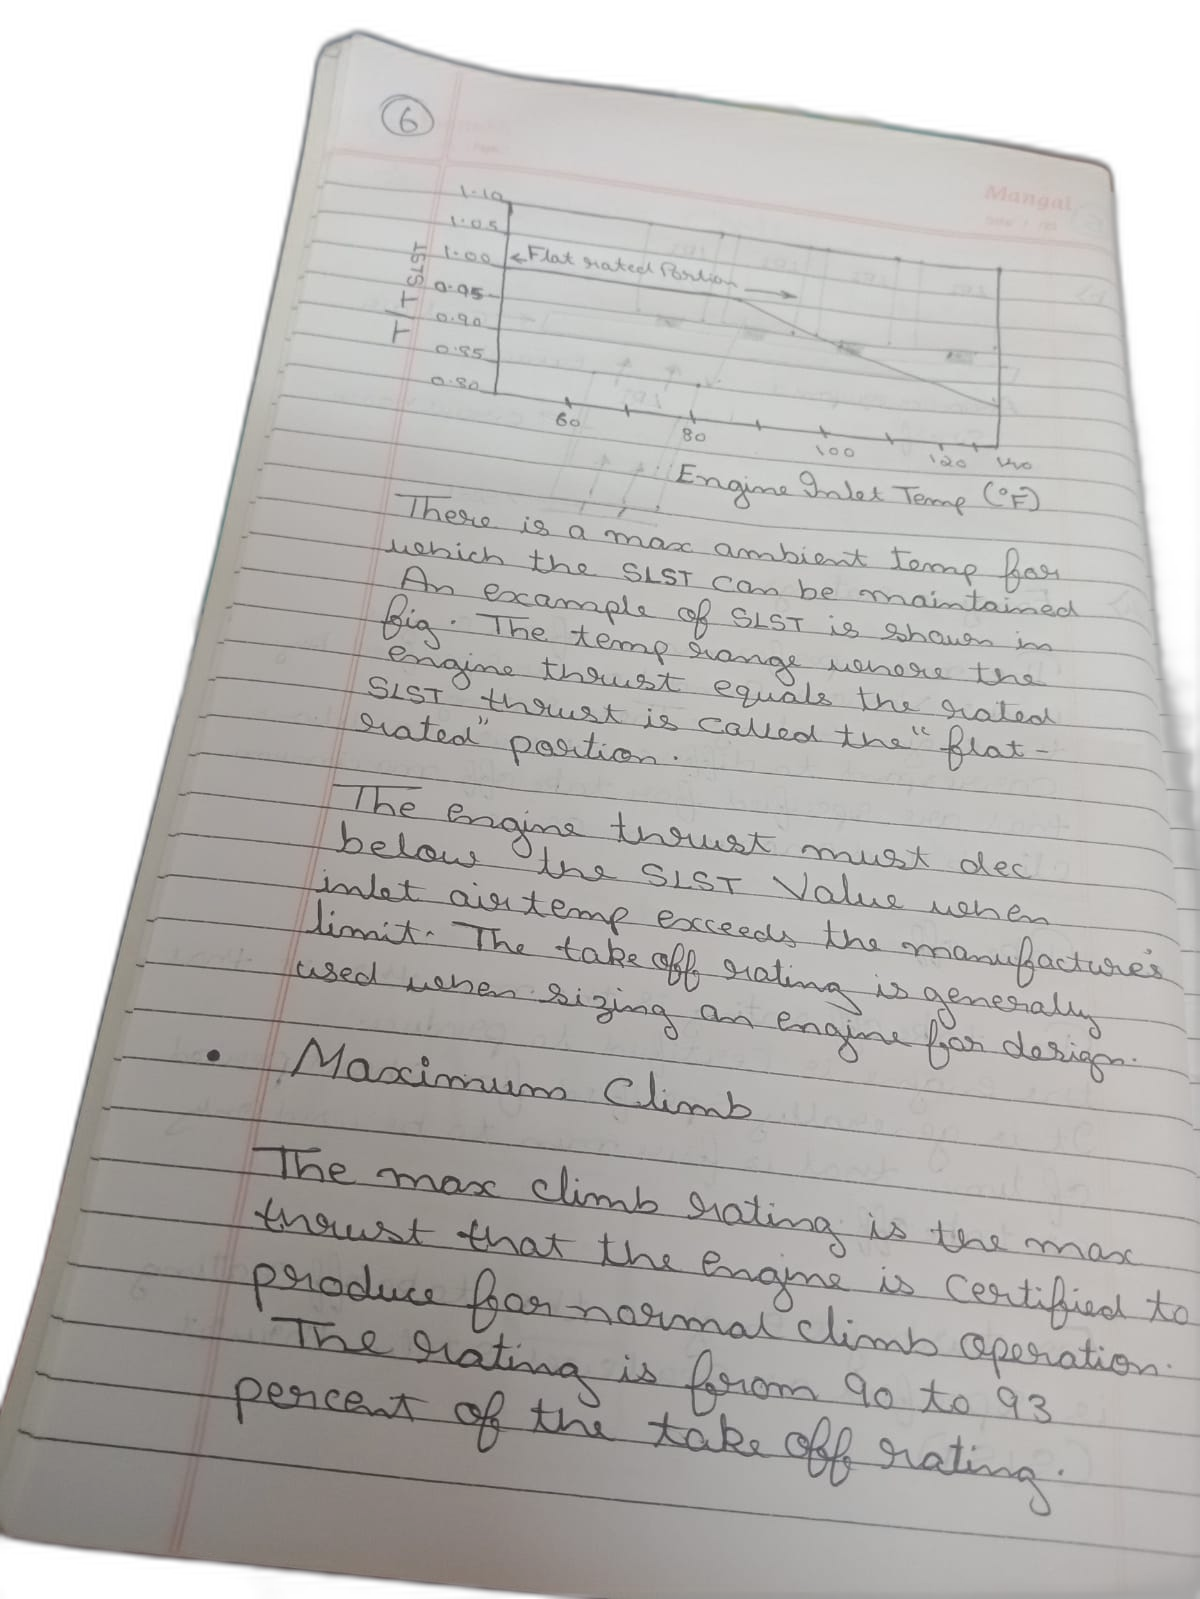 6
Mangal
1.10
1.05
1.00
0.95
0.90
0.85
0.80
T/T SLST
←Flat rated Portion→
60
80
100
120
140
Engine Inlet Temp (°F)
There is a max ambient temp for
which the SLST can be maintained
An example of SLST is shown in
fig. The temp range where the
engine thrust equals the rated
SLST thrust is called the "flat-
rated" portion.
The engine thrust must dec
below the SLST Value when
inlet air temp exceeds the manufacture's
limit. The take off rating is generally
used when sizing an engine for design.
• Maximum Climb
The max climb rating is the max
thrust that the engine is certified to
produce for normal climb operation.
The rating is from 90 to 93
percent of the take off rating.